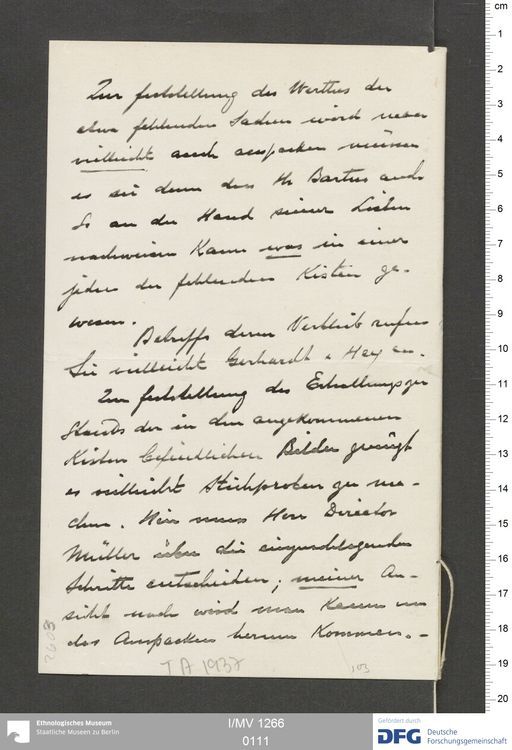 Zur Feststellung des Werthes der
etwa fehlenden Sachen wird man
vielleicht auch auspacken müssen
es sei denn dass Hr Bartus auch
so an der Hand seiner Listen
nachweisen kann was in einer
jeden der fehlenden Kisten ge-
wesen.
Betreffs deren Verbleib rufen
Sie vielleicht Gerhardt & Hey an.
Zur Feststellung des Erhaltungszu
stands der in den angekommenen
Kisten befindlichen Bilder genügt
es vielleicht Stichproben zu ma-
chen. Hier muss Herr Director
Müller über die einzuschlagenden
Schritte entscheiden; meiner An-
sicht nach wird man kaum um
das Auspacken herum kommen. -
2603
TA 1937
103
cm
1
2
3
4
5
6
7
8
9
10
11
12
13
14
15
16
17
18
19
20
Ethnologisches Museum
Staatliche Museen zu Berlin
I/MV 1266
0111
Gefördert durch
DFG Deutsche
Forschungsgemeinschaft